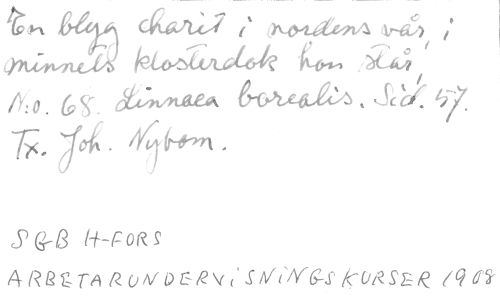 En blyg charit i nordens vår, i
minnets klosterdok hon står,
N:o. 68. Linnaea borealis. Sid. 57.
Tx. Joh. Nybom.
SGB H-FORS
ARBETARUNDERVISNINGSKURSER 1908